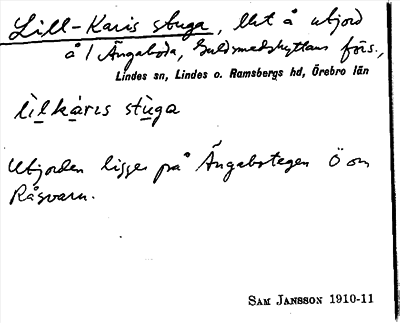 Lill-Karis stuga, lht å utjord
å 1 Ängaboda, Guldsmedshyttans förs.,
Lindes sn, Lindes o. Ramsbergs hd, Örebro län
lìlkàrıs stùga
Utjorden ligger på Ängabotegen Ö om
Råsvarn.
SAM JANSSON 1910-11